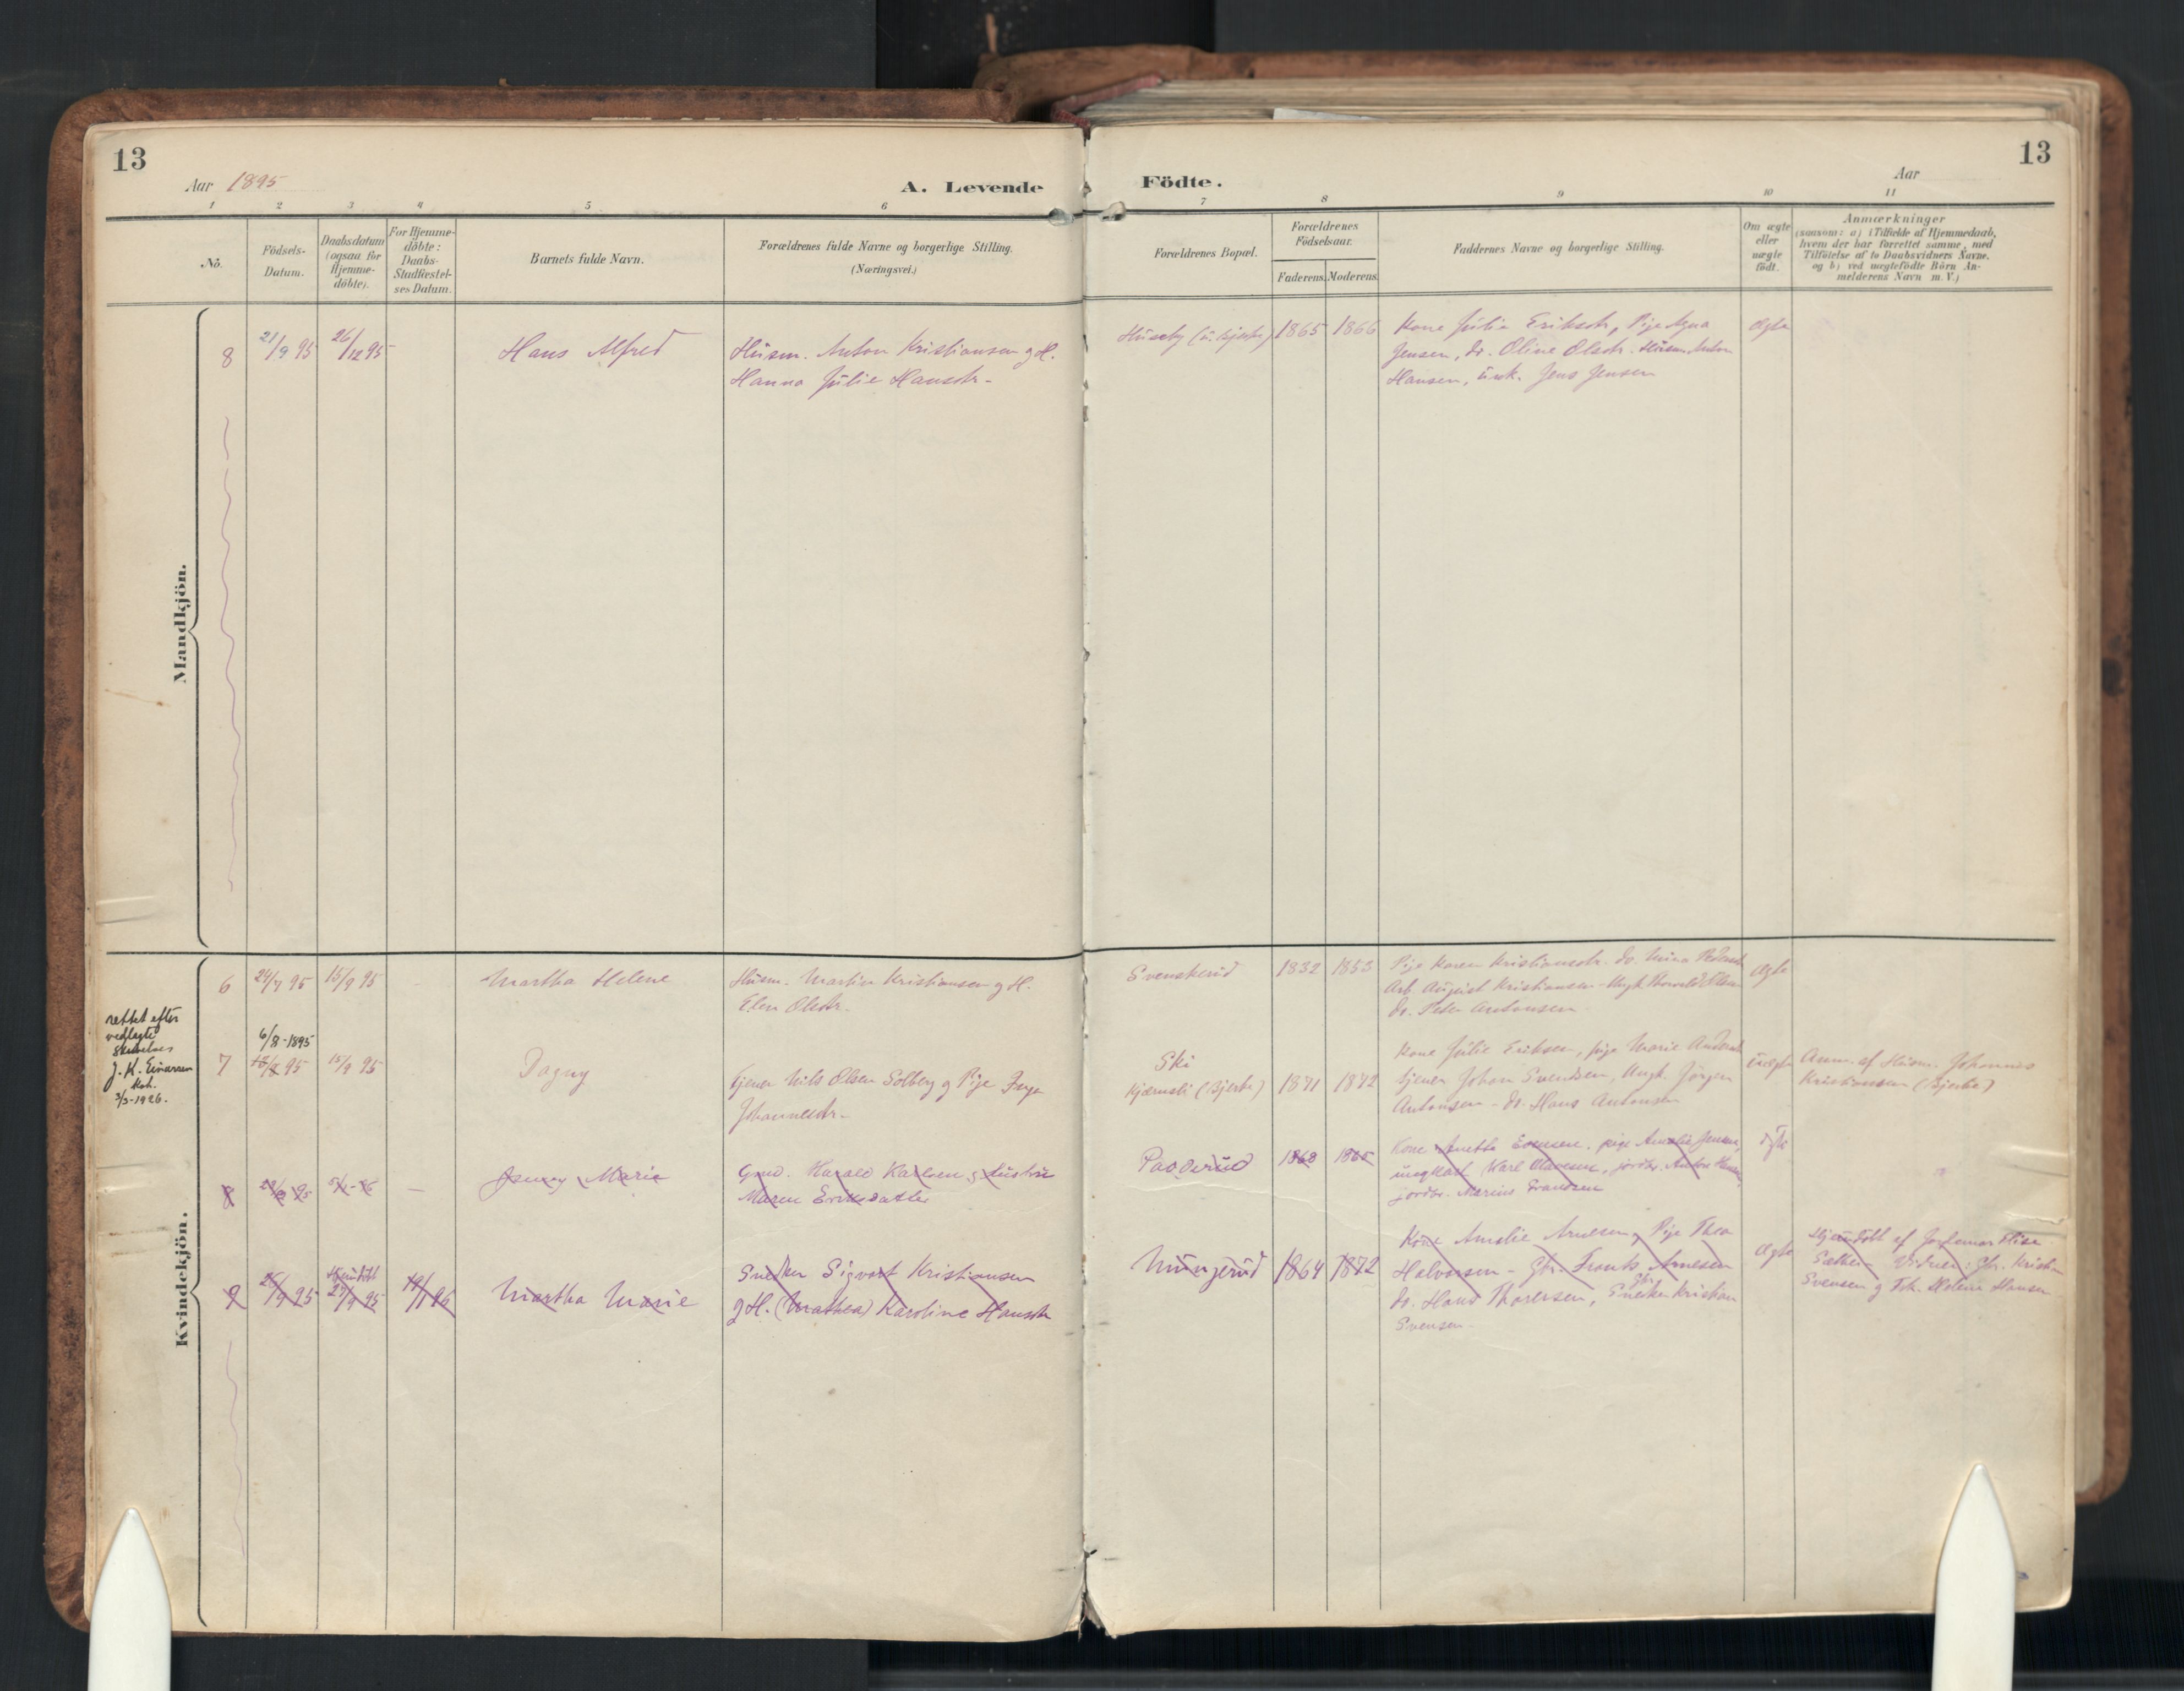 13
Aar 1895
A. Levende
Födte.
Aar
13
1 2 3 4 5 6 7 8 9 10 11
No.
Födsels-
Datum.
Daabsdatum
(ogsaa for
Hjemme-
döbte).
For Hjemme-
döbte:
Daabs-
Stadfæstel-
ses Datum.
Barnets fulde Navn.
Forældrenes fulde Navne og borgerlige Stilling.
(Næringsvei.)
Forældrenes Bopæl.
Forældrenes
Födselsaar.
Faderens. Moderens.
Faddernes Navne og borgerlige Stilling.
Om ægte
eller
uægte
födt.
Anmærkninger
(saasom: a) i Tilfælde af Hjemmedaab,
hvem der har forrettet samme, med
Tilföielse af to Daabsvidners Navne.
og b) ved uægtefödte Börn An-
melderens Navn m. V.)
Mandkjön.
8 21/9 95 26/12 95 Hans Alfred
Husm. Anton Kristiansen g H.
Hanna Julie Hansdtr.
Huseby (u. Bjerke) 1865 1866
Kone Julie Eriksdtr, Pige Agna
Jensen, do. Oline Olsdtr. Husm. Anton
Hansen, unk. Jens Jensen
Ægte
Kvindekjön.
6 24/7 95 15/9 95 Martha Helene
Husm. Martin Kristiansen g H.
Elen Olsdtr.
Svenskerud 1832 1853
Pige Karen Kristiansdtr. do. Mina
Arb. August Kristiansen - Ungk.
do. Peter Antonsen
Ægte
rettet efter
vedlagte
skrivelses
J. K. Einarsen
3/3-1926.
6/8-1895
7 95 15/9 95 Dagny
Tjener Nils Olsen Solberg g Pige
Johannesdtr.
Ski
Kjærnsli (Bjerke) 1871 1872
Kone Julie Eriksen, pige Marie
tjener Johan Svendsen, Ungk. Jörgen
Antonsen - do. Hans Antonsen
Uægte
Anm. af Husm. Johannes
Kristiansen (Bjerke)
8 — Jenny Marie
Gmd. Harald Karlsen g Hustru
Maren Eriksdatter
Paaderud 1868 1865
Kone Anette Evensen. pige Amalie Jensen,
ungkarl Karl Olavesen, jordbr. Anton
jordbr. Marius Frandsen
9 26/9 95 Hjemdöbt
29/9 95 19/1 96 Martha Marie
Snedker Sigvart Kristiansen
g H. (Mathea) Karoline Hansdtr
Mungerud 1864 1872
Kone Amalie Arnesen, Pige Thea
Halvorsen - Gbr. Frants Arnesen
do. Hans Thoresen, Snedker Kristian
Svensen
Ægte
Hjemdöbt af Jordemor Elise
Sæther Vidner: Gbr. Kristian
Svensen g Helene Hansen